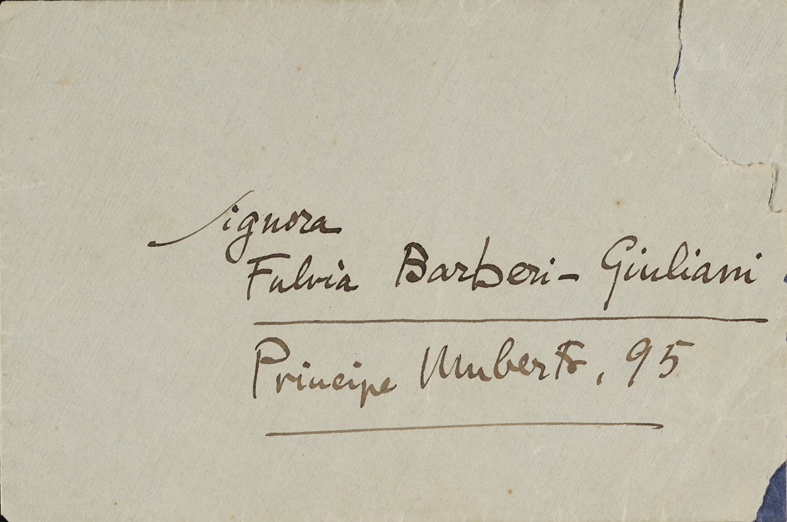 Signora
Fulvia Barberi - Giuliani
Principe Umberto, 95